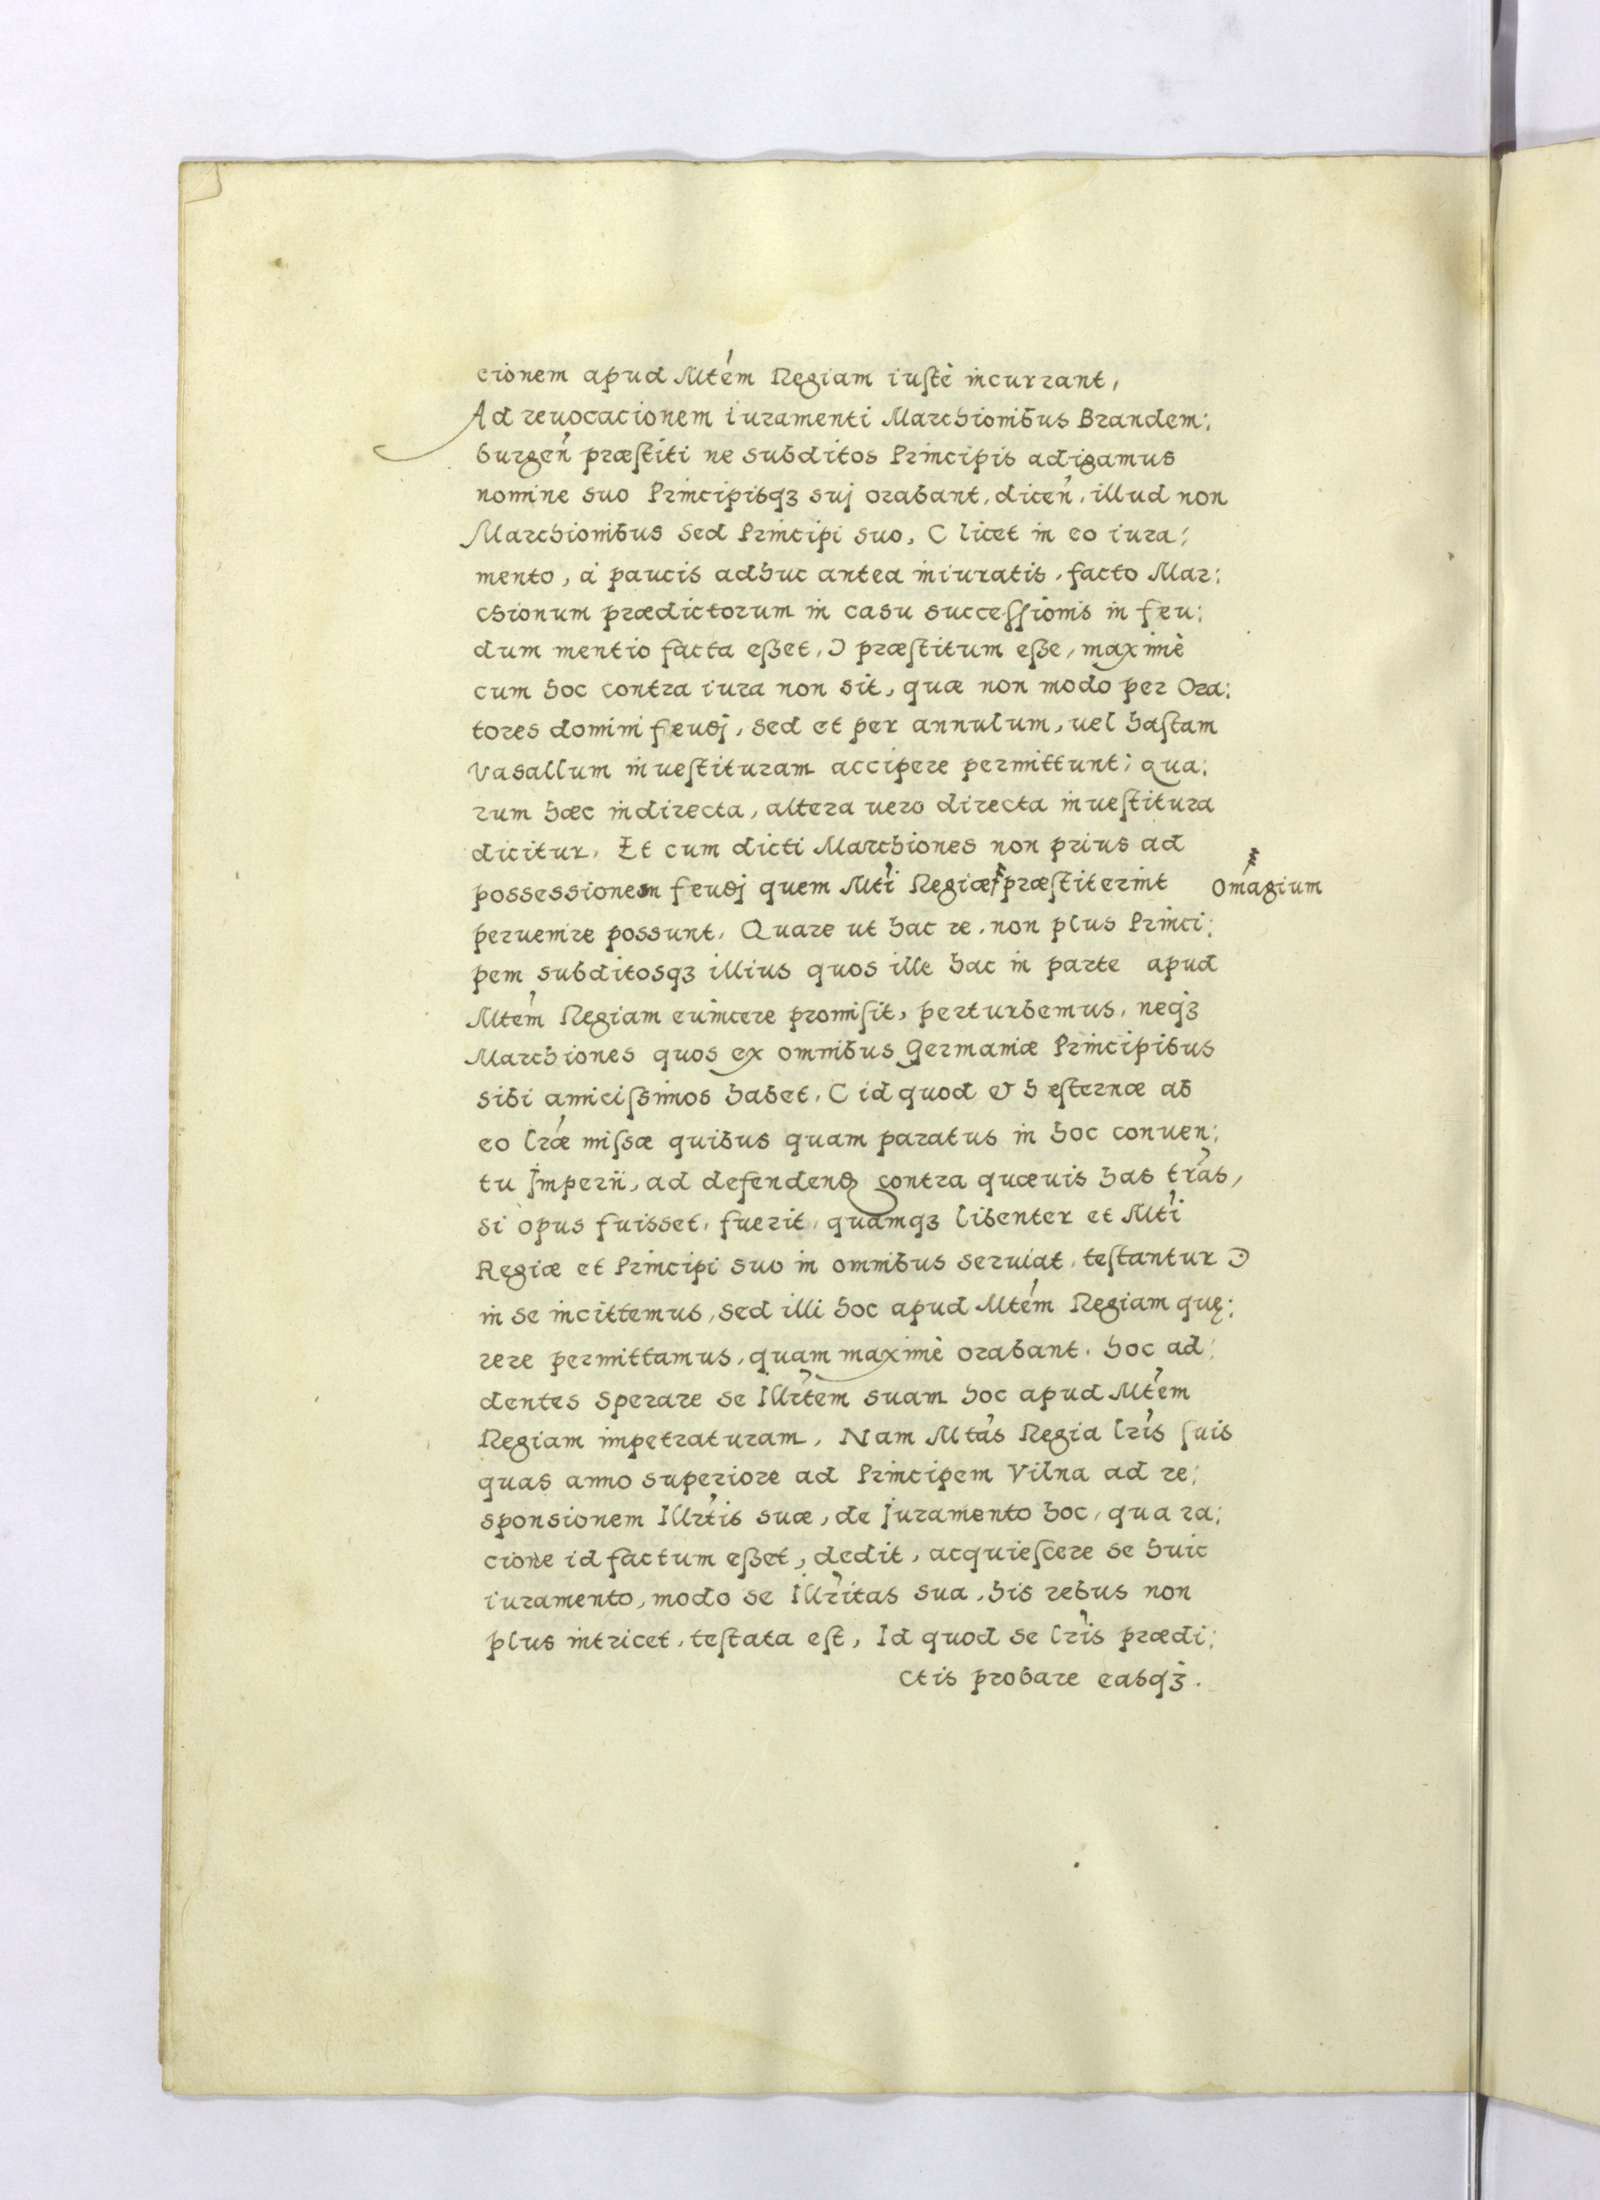 cionem apud Mtem Regiam iustè incurrant,
Ad reuocacionem iuramenti Marchionibus Brandem:
burgen præstiti ne subditos Principis adigamus
nomine suo Principisqȝ suj orabant, dicen, illud non
Marchionibus sed Principi suo, C licet in eo iura:
mento, à paucis adhuc antea iniuratis, facto Mar:
chionum prædictorum in casu successionis in feu:
dum mentio facta eßet, Ɔ præstitum eße, maximè
cum hoc contra iura non sit, quæ non modo per Ora:
tores domini feudj, sed et per annulum, uel hastam
Vasallum inuestituram accipere permittunt; qua:
rum hæc indirecta, altera uero directa inuestitura
dicitur, Et cum dicti Marchiones non prius ad
possessionem feudj quem Mti Regiæ præstiterint omagium
peruenire possunt, Quare ut hac re, non plus Princi:
pem subditosqȝ illius quos ille hac in parte apud
Mtem Regiam euincere promisit, perturbemus, neqȝ
Marchiones quos ex omnibus Germaniæ Principibus
sibi amicissimos habet, C id quod & hesternæ ab
eo lræ missæ quibus quam paratus in hoc conuen:
tu Imperii, ad defendend contra quæuis has tras,
si opus fuisset, fuerit, quamqȝ libenter et Mti
Regiæ et Principi suo in omnibus seruiat, testantur Ɔ
in se incittemus, sed illi hoc apud Mtem Regiam quę:
rere permittamus, quam maximè orabant, hoc ad:
dentes sperare se Illrtem suam hoc apud Mtem
Regiam impetraturam, Nam Mtas Regia lris suis
quas anno superiore ad Principem Vilna ad re:
sponsionem Illrtis suæ, de Juramento hoc, qua ra:
cione id factum eßet, dedit, acquiescere se huic
iuramento, modo se Illritas sua, his rebus non
plus intricet, testata est, Id quod se lris prædi:
ctis probare easqȝ.